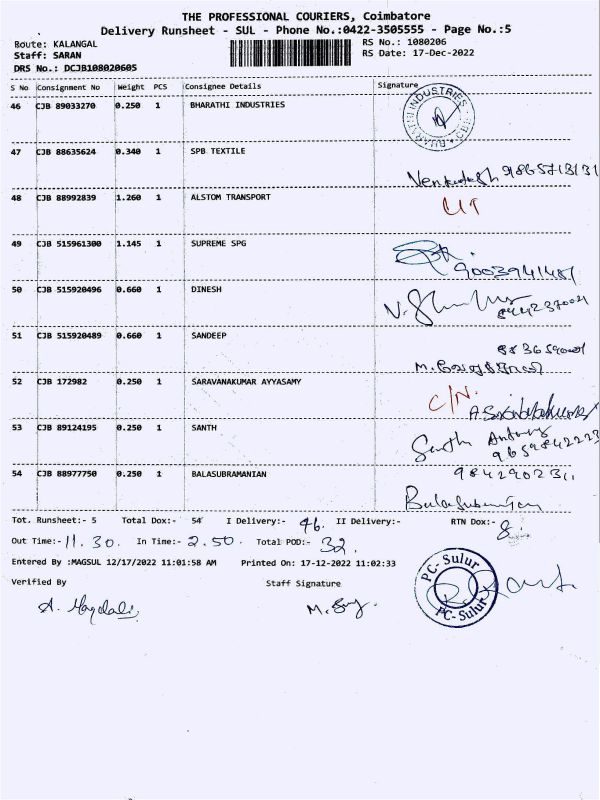 THE PROFESSIONAL COURIERS, Coimbatore
Delivery Runsheet - SUL - Phone No.:0422-3505555 - Page No.:5
Boute: KALANGAL RS No.: 1080206
Staff: SARAN RS Date: 17-Dec-2022
DRS No.: DCJB108020605
S No Consignment No Weight PCS Consignee Details Signature
46 CJB 89033270 0.250 1 BHARATHI INDUSTRIES
BHARATHI INDUSTRIES
47 CJB 88635624 0.340 1 SPB TEXTILE
9865713131
48 CJB 88992839 1.260 1 ALSTOM TRANSPORT
49 CJB 515961300 1.145 1 SUPREME SPG
9003941481
50 CJB 515920496 0.660 1 DINESH
51 CJB 515920489 0.660 1 SANDEEP
52 CJB 172982 0.250 1 SARAVANAKUMAR AYYASAMY
C/N.
53 CJB 89124195 0.250 1 SANTH
Santh Antony
9659842223
54 CJB 88977750 0.250 1 BALASUBRAMANIAN
Tot. Runsheet:- 5 Total Dox:- 54 I Delivery:- 46. II Delivery:- RTN Dox:- 8.
Out Time:- 11.30. In Time:- 2.50. Total POD:- 32.
Entered By :MAGSUL 12/17/2022 11:01:58 AM Printed On: 17-12-2022 11:02:33
Verified By Staff Signature
PC- Sulur
PC-Sulur